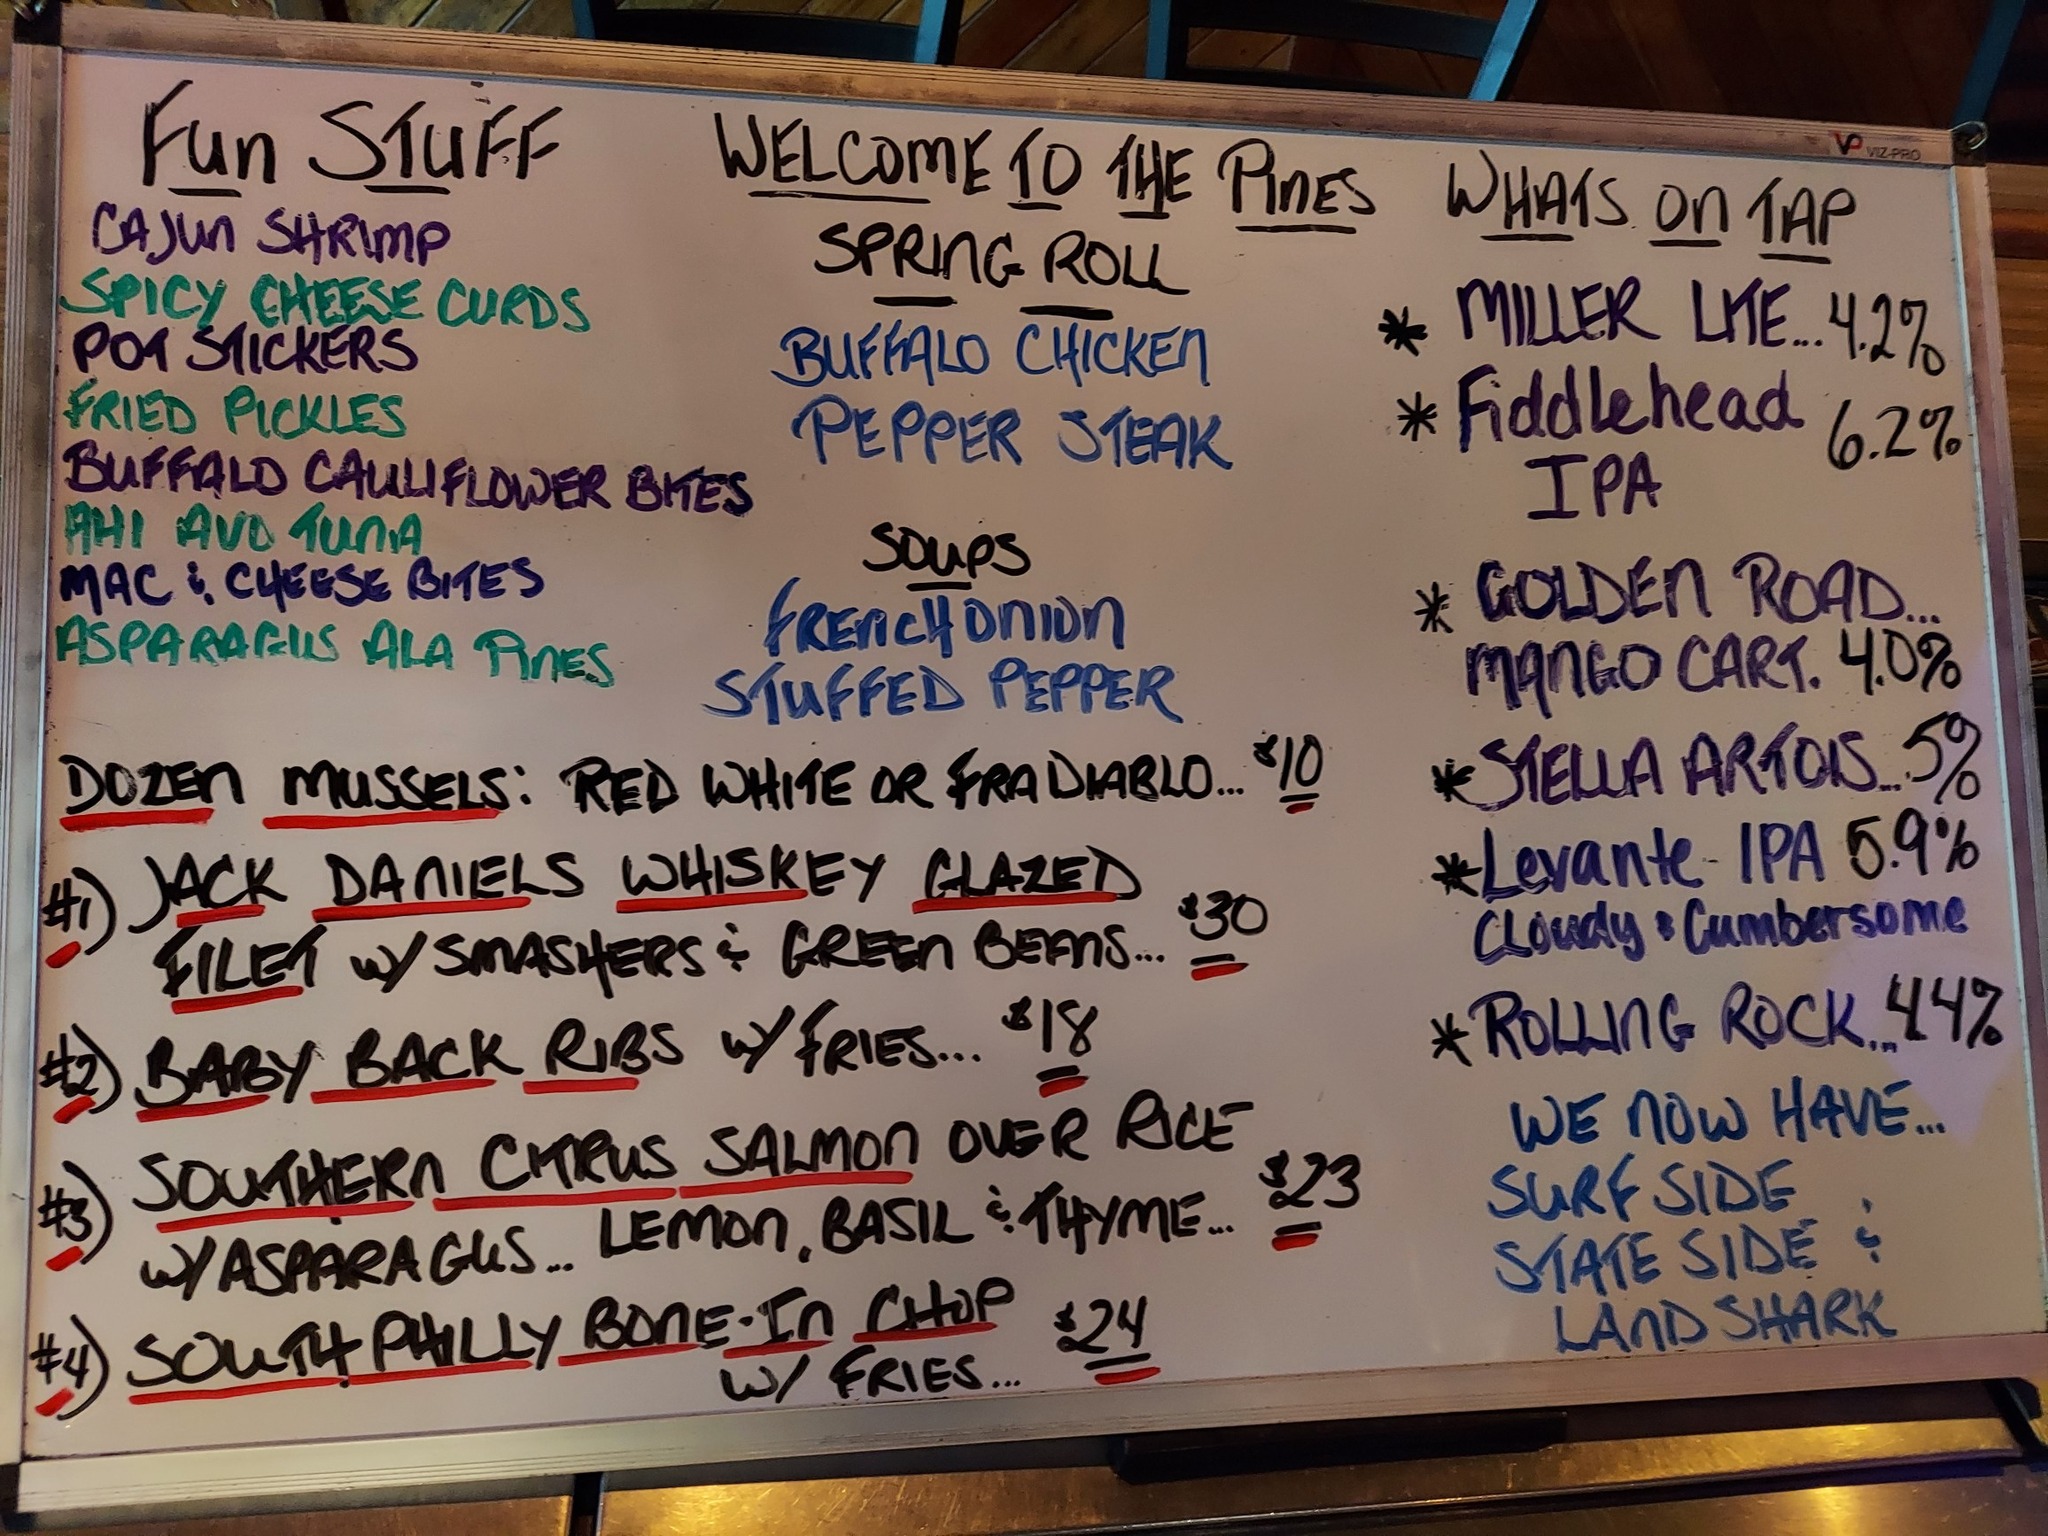 Fun STUFF
CAJUN SHRIMP
SPICY CHEESE CURDS
POT STICKERS
FRIED PICKLES
BUFFALO CAULIFLOWER BITES
AHI AVO TUNA
MAC & CHEESE BITES
ASPARAGUS ALA PINES
WELCOME TO THE PINES
SPRING ROLL
BUFFALO CHICKEN
PEPPER STEAK
SOUPS
FRENCH ONION
STUFFED PEPPER
DOZEN MUSSELS: RED WHITE OR FRA DIABLO... $10
#1) JACK DANIELS WHISKEY GLAZED
FILET W/ SMASHERS & GREEN BEANS... $30
#2) BABY BACK RIBS W/ FRIES... $18
#3) SOUTHERN CITRUS SALMON OVER RICE
W/ ASPARAGUS... LEMON, BASIL & THYME... $23
#4) SOUTH PHILLY BONE-IN CHOP
W/ FRIES... $24
VP VIZ-PRO
WHATS ON TAP
* MILLER LITE... 4.2%
* Fiddlehead 6.2%
IPA
* GOLDEN ROAD...
MANGO CART. 4.0%
* STELLA ARTOIS... 5%
* Levante - IPA 5.9%
Cloudy & Cumbersome
* ROLLING ROCK... 4.4%
WE NOW HAVE...
SURF SIDE
STATE SIDE &
LAND SHARK